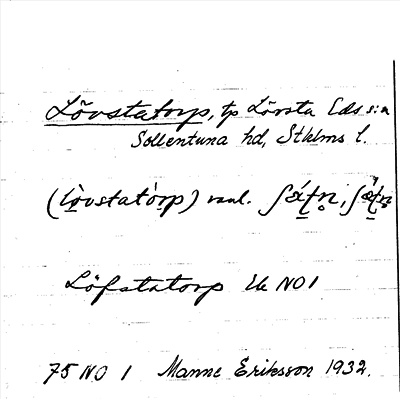 Lövstatorp, tp Lövsta Eds s:n
Sollentuna hd, Stklms l.
(lòvstatòrp) vanl.
Löfstatorp Ek NO 1
75 NO 1 Manne Eriksson 1932.